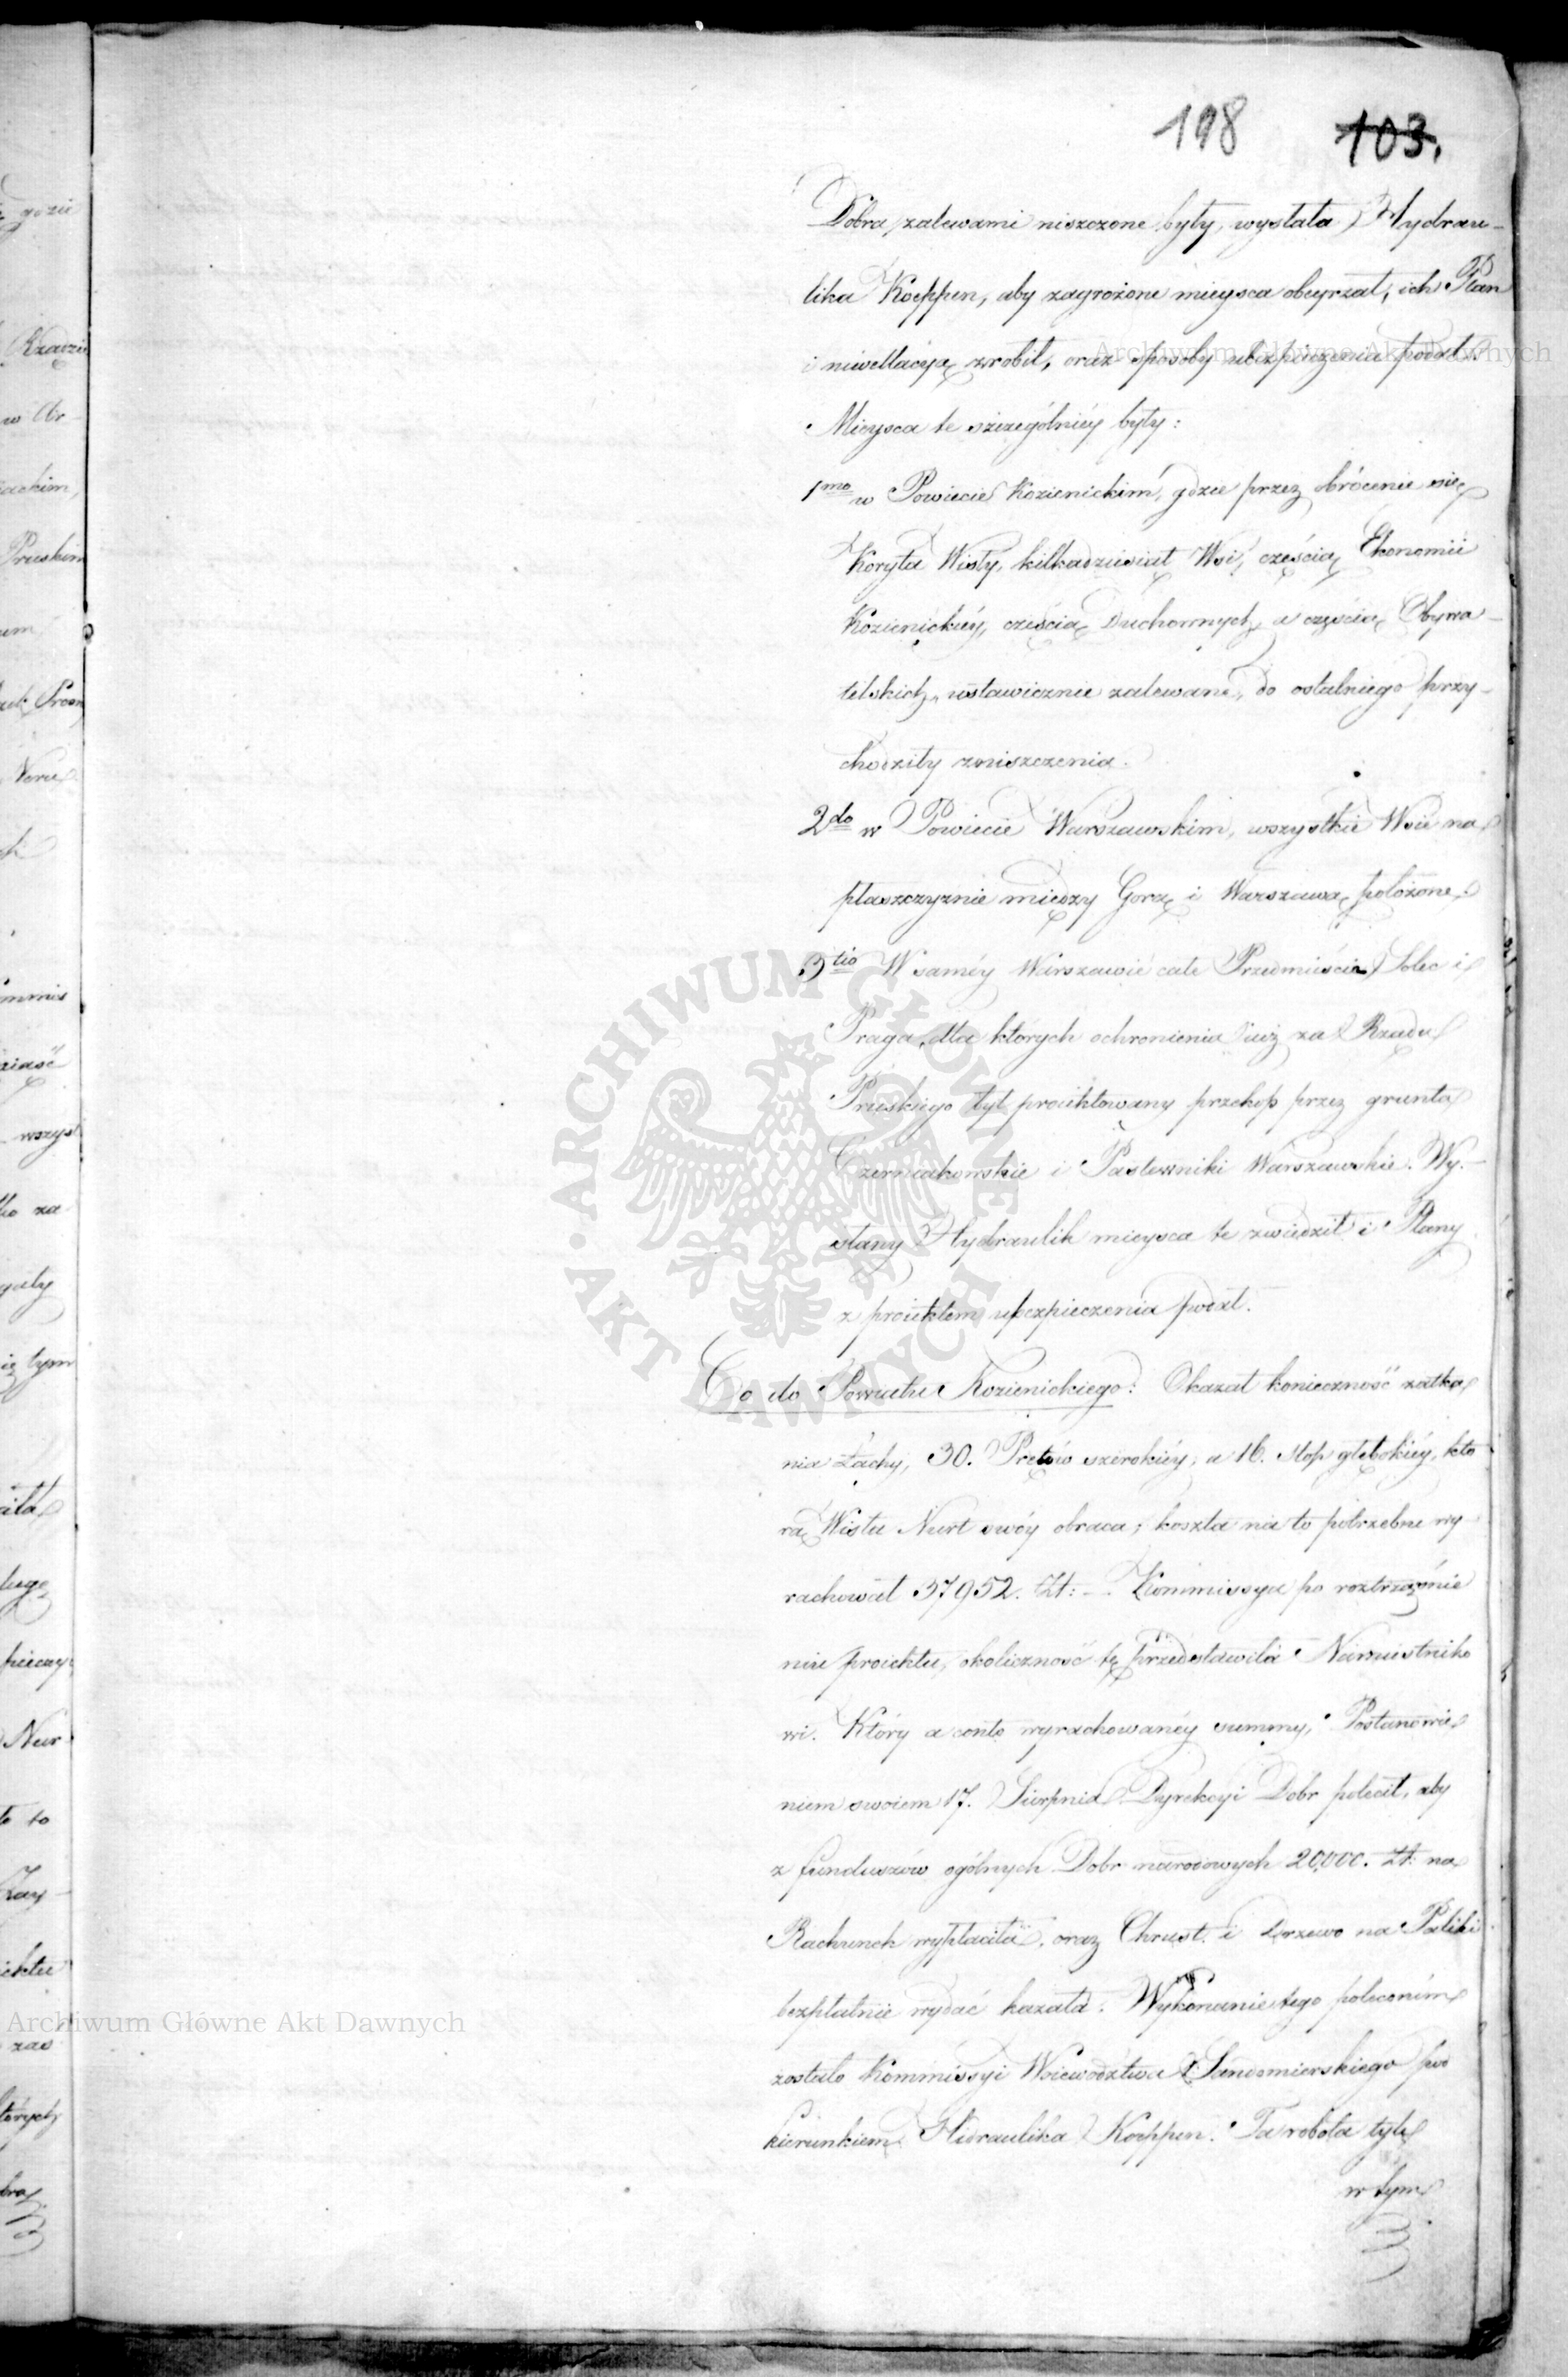 198 103.
Dobra zalewami niszczone były, wysłała Hydrau-
lika Koeppen, aby zagrożone mieysca obeyrzał, ich Plan
i niwellacyą zrobił, oraz sposoby ubezpieczenia podał.
Mieysca te szczególniéy były:
1mo w Powiecie Kozienickim, gdzie przez obrócenie się
Koryta Wisły, kilkadziesiąt Wsi, częścią Ekonomii
Kozienickiéy, częścią Duchownych, a częścią Obywa-
telskich, ustawicznie zalewane, do ostatniego przy-
chodziły zniszczenia.
2do w Powiecie Warszawskim, wszystkie Wsie na
płaszczyznie między Gorą i Warszawą położone.
3tio W saméy Warszawie całe Przedmieścia Solec i
Praga, dla których ochronienia iuż za Rządu
Pruskiego był proiektowany przekop przez grunta
Czerniakowskie i Pastewniki Warszawskie. Wy-
słany Hydraulik mieysca te zwiedził i Plany
z proiektem ubezpieczenia podał.
Co do Powiatu Kozienickiego: Okazał konieczność zatka
nia Łachy, 30. Prętów szerokiéy, a 16. stop głębokiéy, któ
rą Wisła Nurt swóy obraca; koszta na to potrzebne wy-
rachował 37952. Zł: – Kommissya po roztrząśnie
niu proiektu, okoliczność tę przedstawiła Namiestniko
wi. Który a conto wyrachowanéy summy, Postanowie
niem swoiem 17. Sierpnia Dyrekcyi Dobr polecił, aby
z funduszów ogólnych Dobr narodowych 20,000. Zł: na
Rachunek wypłaciła, oraz Chrust i drzewo na Paliki
bezpłatnie wydać kazała. Wykonanie tego poleconém
zostało Kommissyi Woiewództwa Sandomierskiego pod
kierunkiem Hidraulika Koeppen. Ta robota tyle
w tym
Archiwum Główne Akt Dawnych
Archiwum Główne Akt Dawnych
ARCHIWUM GŁÓWNE AKT DAWNYCH